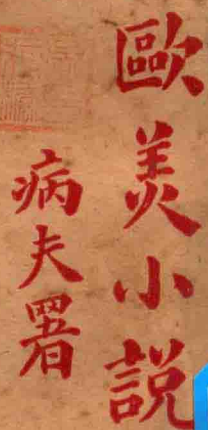 歐美小説
病夫署